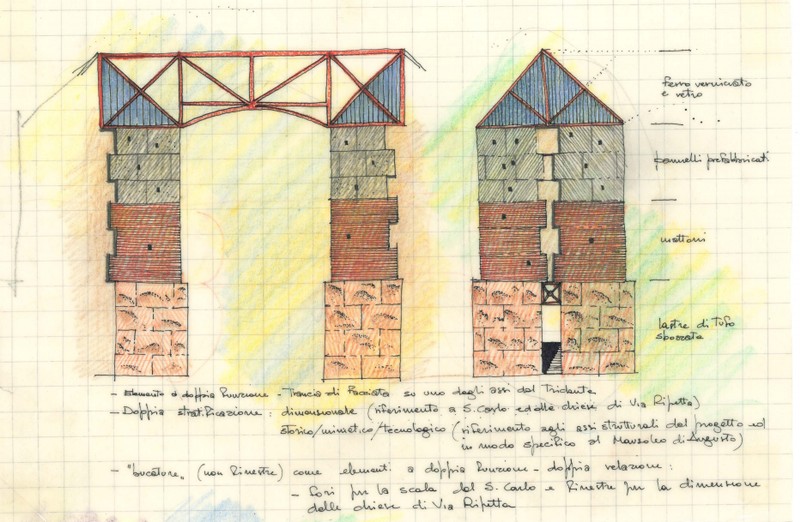 ferro verniciato
e vetro
pannelli prefabbricati
mattoni
lastre di tufo
sbozzata
- Elemento a doppia funzione - Traccia di Facciata su uno degli assi del Tridente
- Doppia stratificazione: dimensionale (riferimento a S. Carlo ed alle chiese di Via Ripetta)
storico/mimetico/tecnologico (riferimento agli assi strutturali del progetto ed
in modo specifico al Mausoleo di Augusto)
- "bucature" (non finestre) come elementi a doppia funzione - doppia relazione:
- fori per la scala del S. Carlo e finestre per la dimensione
delle chiese di Via Ripetta